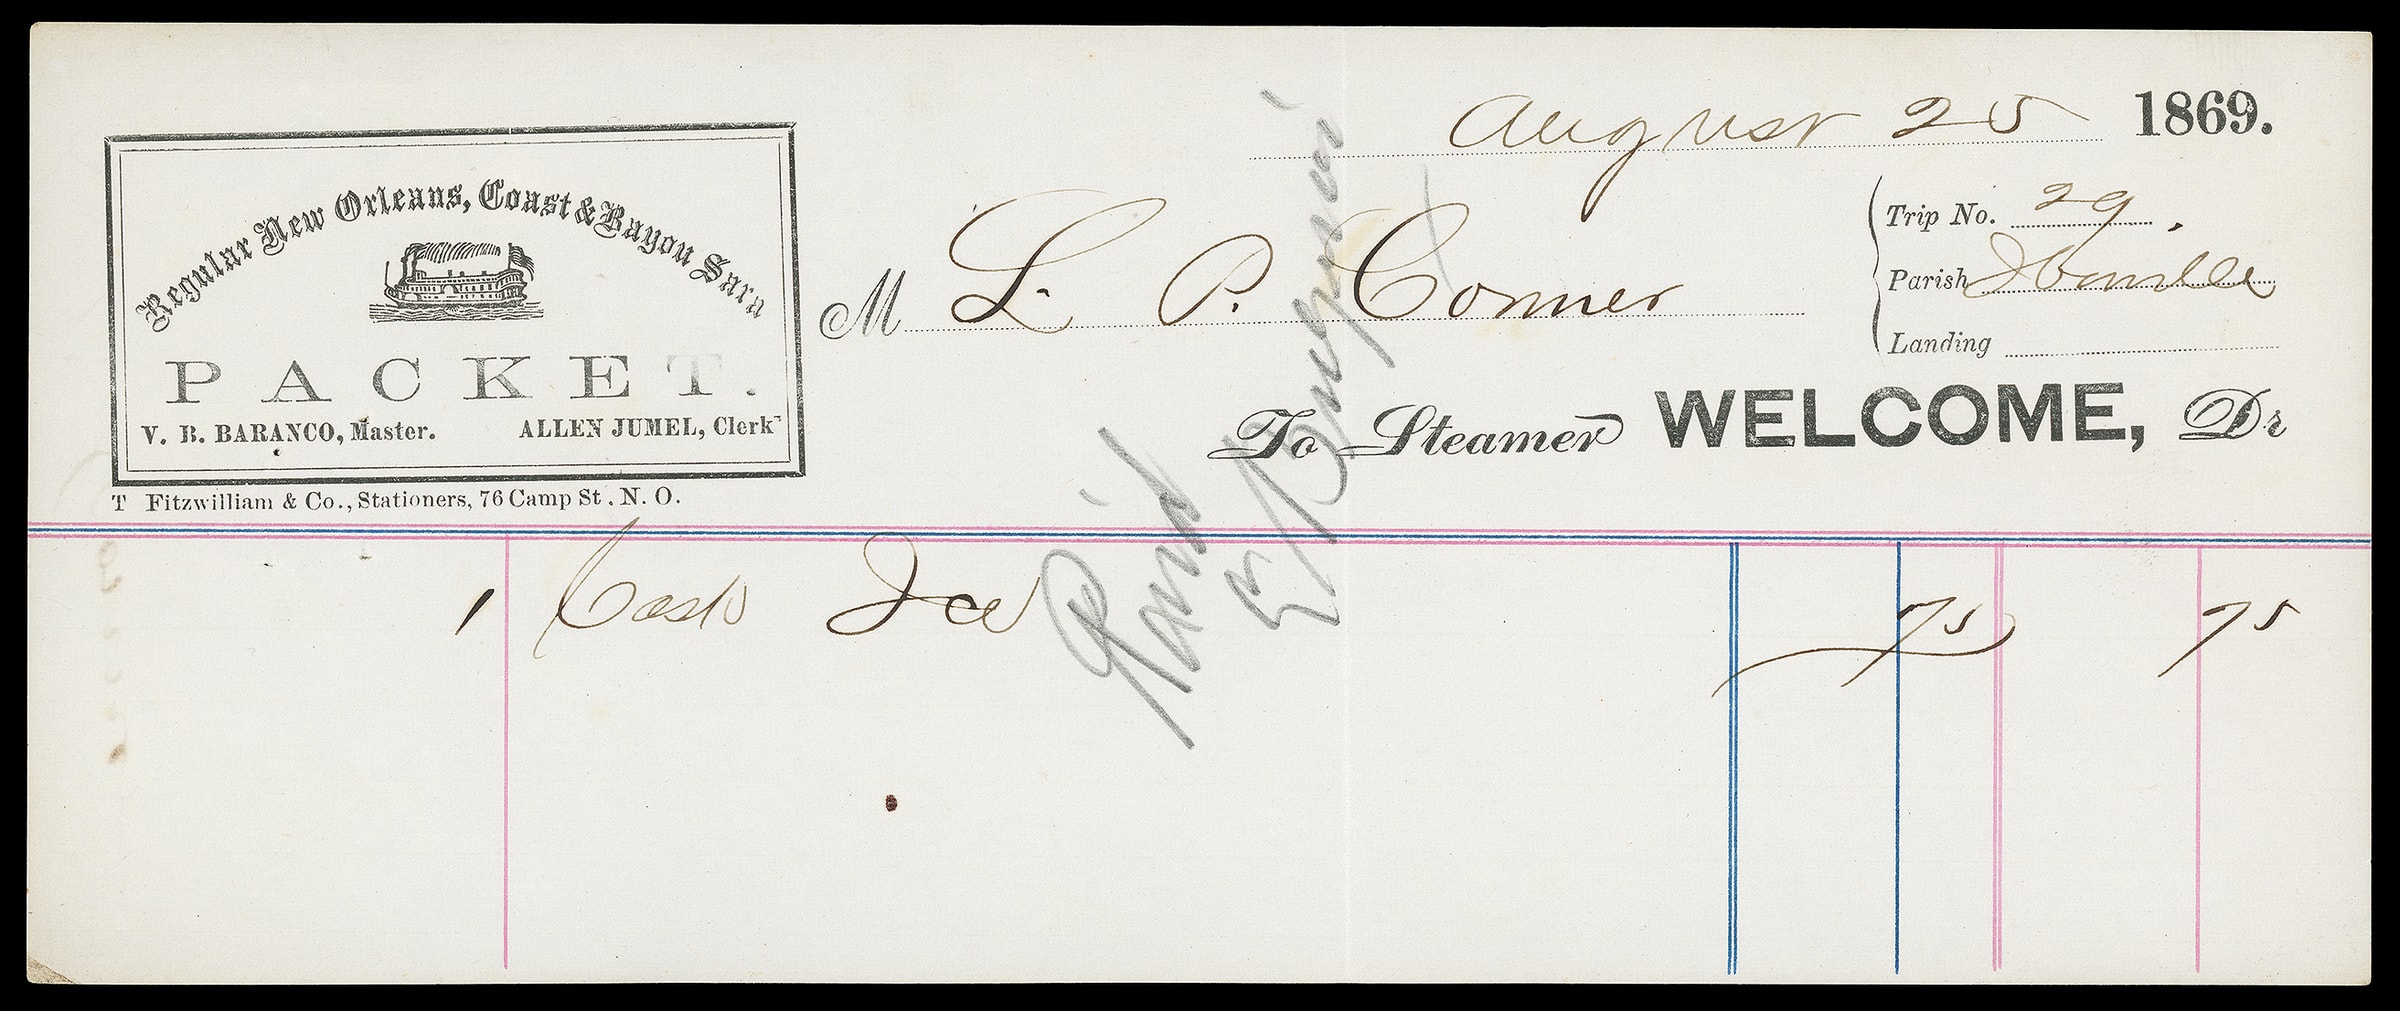 August 25 1869.
Regular New Orleans, Coast & Bayou Sara
PACKET.
V. B. BARANCO, Master. ALLEN JUMEL, Clerk
T Fitzwilliam & Co., Stationers, 76 Camp St. N. O.
Trip No. 29.
M L. P. Conner
Parish Iberville
Landing
To Steamer WELCOME, Dr
1 Cask Ice 75 75
Paid